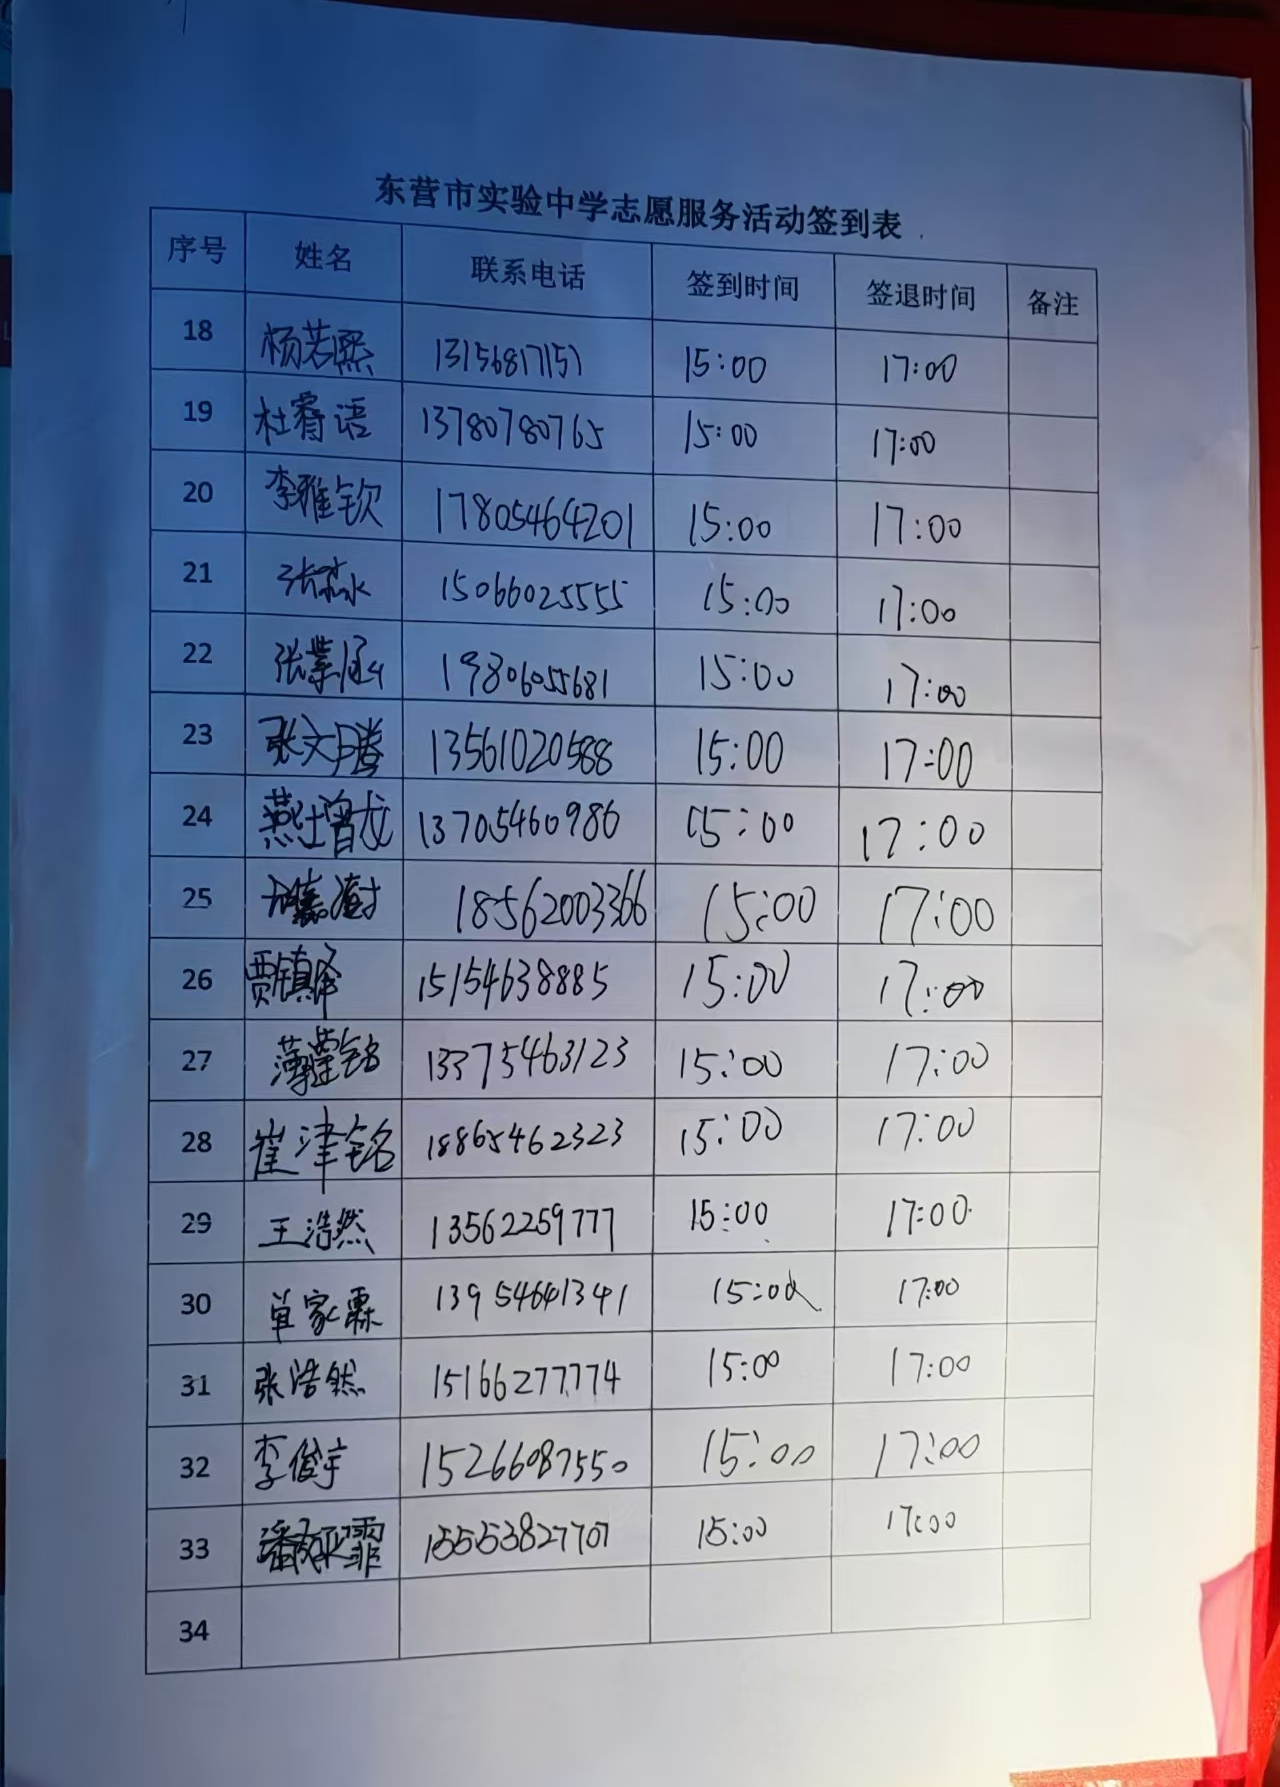 东营市实验中学志愿服务活动签到表
序号 姓名 联系电话 签到时间 签退时间 备注
18 杨若熙 13156817157 15:00 17:00
19 杜睿语 13780780765 15:00 17:00
20 李雅钦 17805464201 15:00 17:00
21 张淼 15066025555 15:00 17:00
22 张 涵 19806055681 15:00 17:00
23 张文腾 13561020588 15:00 17:00
24 燕增龙 13705460986 15:00 17:00
25 18562003366 15:00 17:00
26 贾镇泽 15154638885 15:00 17:00
27 薄 铭 13375463123 15:00 17:00
28 崔津铭 18865462323 15:00 17:00
29 王浩然 13562259777 15:00 17:00
30 单家霖 13954641341 15:00 17:00
31 张浩然 15166277774 15:00 17:00
32 李俊宇 15266087550 15:00 17:00
33 潘 霏 15553827707 15:00 17:00
34